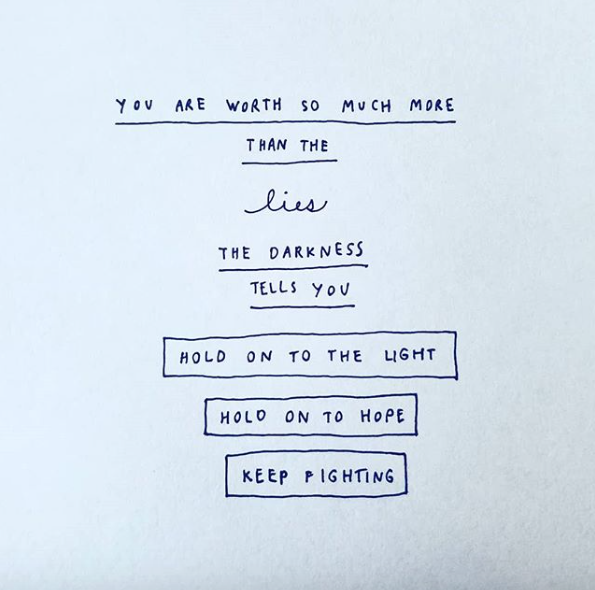 YOU ARE WORTH SO MUCH MORE
THAN THE
lies
THE DARKNESS
TELLS YOU
HOLD ON TO THE LIGHT
HOLD ON TO HOPE
KEEP FIGHTING